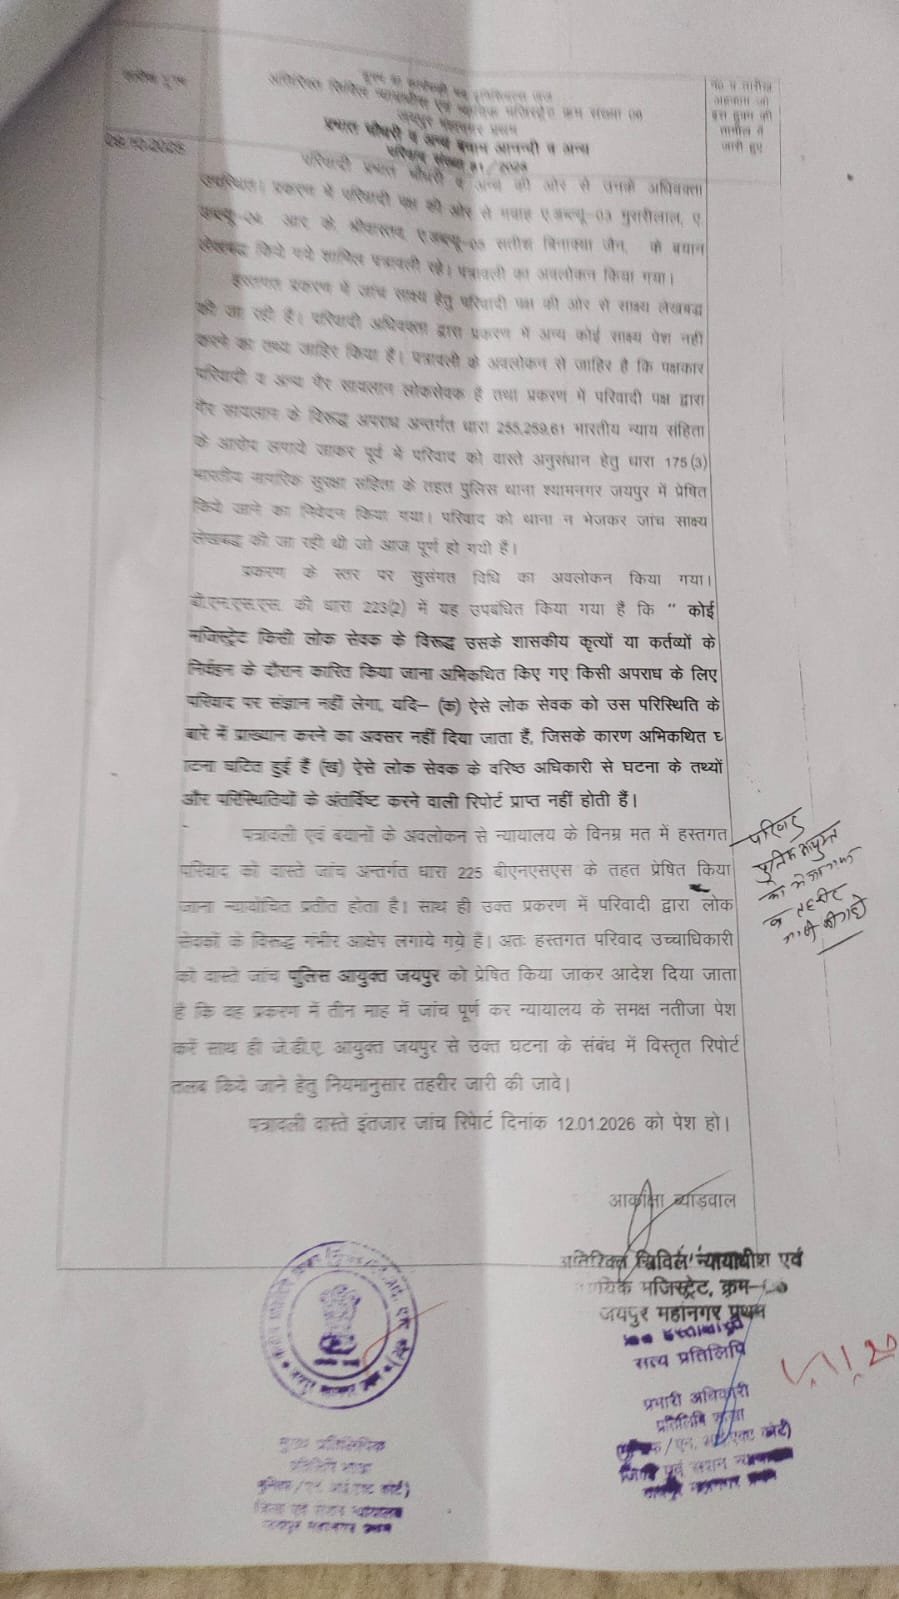 हुक्म या कार्यवाही मय इनिशियल्स जज
अतिरिक्त सिविल न्यायाधीश एवं न्यायिक मजिस्ट्रेट क्रम संख्या
जयपुर महानगर प्रथम
प्रभात चौधरी व अन्य बनाम आनन्दी व अन्य
परिवाद संख्या
तारीख हुक्म
नं० व तारीख
अहकाम जो
इस हुक्म की
तामील में
जारी हुए
परिवादी प्रभात चौधरी व अन्य की ओर से उनके अधिवक्ता
उपस्थित। प्रकरण में परिवादी पक्ष की ओर से गवाह एडब्ल्यू-03 मुरारीलाल, ए.
आर के. श्रीवास्तव, एडब्ल्यू-05 सतीश जैन, के बयान
लेखबद्ध किये गये शामिल पत्रावली रहे। पत्रावली का अवलोकन किया गया।
हस्तगत प्रकरण में जांच साक्ष्य हेतु परिवादी पक्ष की ओर से साक्ष्य लेखबद्ध
की जा रही है। परिवादी अधिवक्ता द्वारा प्रकरण में अन्य कोई साक्ष्य पेश नहीं
करने का तथ्य जाहिर किया है। पत्रावली के अवलोकन से जाहिर है कि पक्षकार
परिवादी व अन्य गैर सायलान लोकसेवक है तथा प्रकरण में परिवादी पक्ष द्वारा
गैर सायलान के विरूद्ध अपराध अन्तर्गत धारा 255,259,61 भारतीय न्याय संहिता
के आरोप लगाये जाकर पूर्व में परिवाद को वास्ते अनुसंधान हेतु धारा 175(3)
भारतीय नागरिक सुरक्षा संहिता के तहत पुलिस थाना श्यामनगर जयपुर में प्रेषित
किये जाने का निवेदन किया गया। परिवाद को थाना न भेजकर जांच साक्ष्य
लेखबद्ध की जा रही थी जो आज पूर्ण हो गयी हैं।
प्रकरण के स्तर पर सुसंगत विधि का अवलोकन किया गया।
बी.एन.एस.एस. की धारा 223(2) में यह उपबंधित किया गया है कि " कोई
मजिस्ट्रेट किसी लोक सेवक के विरूद्ध उसके शासकीय कृत्यों या कर्तव्यों के
निर्वहन के दौरान कारित किया जाना अभिकथित किए गए किसी अपराध के लिए
परिवाद पर संज्ञान नहीं लेगा, यदि– (क) ऐसे लोक सेवक को उस परिस्थिति के
बारे में प्राख्यान करने का अवसर नहीं दिया जाता हैं, जिसके कारण अभिकथित घ
टना घटित हुई हैं (ख) ऐसे लोक सेवक के वरिष्ठ अधिकारी से घटना के तथ्यों
और परिस्थितियों के अंतर्विष्ट करने वाली रिपोर्ट प्राप्त नहीं होती हैं।
पत्रावली एवं बयानों के अवलोकन से न्यायालय के विनम्र मत में हस्तगत
परिवाद को वास्ते जांच अन्तर्गत धारा 225 बीएनएसएस के तहत प्रेषित किया
जाना न्यायोचित प्रतीत होता है। साथ ही उक्त प्रकरण में परिवादी द्वारा लोक
सेवकों के विरूद्ध गंभीर आक्षेप लगाये गये हैं। अतः हस्तगत परिवाद उच्चाधिकारी
को वास्ते जांच पुलिस आयुक्त जयपुर को प्रेषित किया जाकर आदेश दिया जाता
है कि वह प्रकरण में तीन माह में जांच पूर्ण कर न्यायालय के समक्ष नतीजा पेश
करें साथ ही जे.डी.ए. आयुक्त जयपुर से उक्त घटना के संबंध में विस्तृत रिपोर्ट
तलब किये जाने हेतु नियमानुसार तहरीर जारी की जावे।
पत्रावली वास्ते इंतजार जांच रिपोर्ट दिनांक 12.01.2026 को पेश हो।
परिवाद
पुलिस आयुक्त
को भेजा गया
व तहरीर
जारी की गई
आकांक्षा ब्याड़वाल
अतिरिक्त सिविल न्यायाधीश एवं
न्यायिक मजिस्ट्रेट, क्रम–
जयपुर महानगर प्रथम
सत्य प्रतिलिपि
प्रभारी अधिकारी
प्रतिलिपि शाखा
जिला एवं सेशन न्यायालय
जयपुर महानगर प्रथम
मुख्य प्रतिलिपिक
प्रतिलिपि शाखा
जिला एवं सेशन न्यायालय
जयपुर महानगर प्रथम